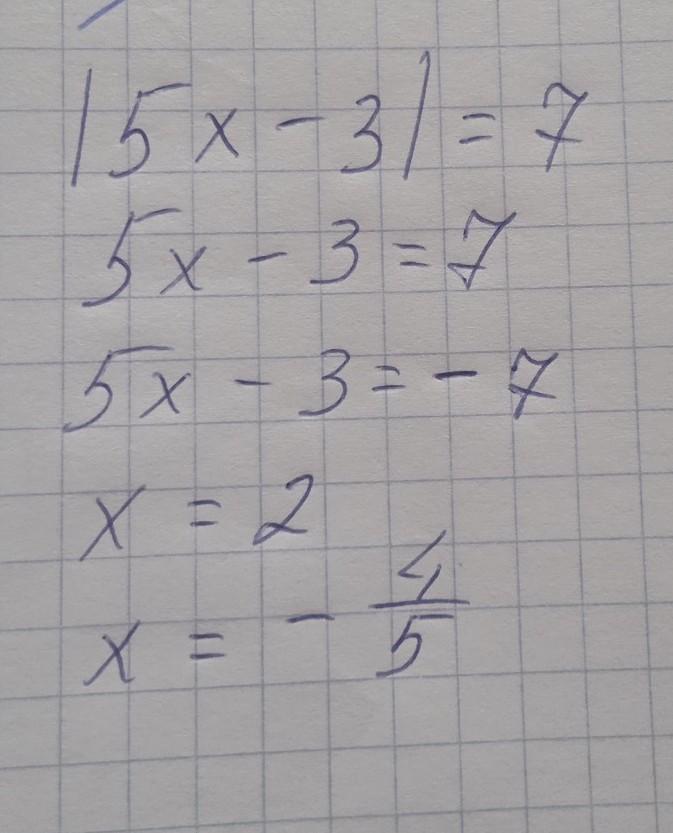 |5x - 3| = 7
5x - 3 = 7
5x - 3 = - 7
x = 2
x = - 4/5